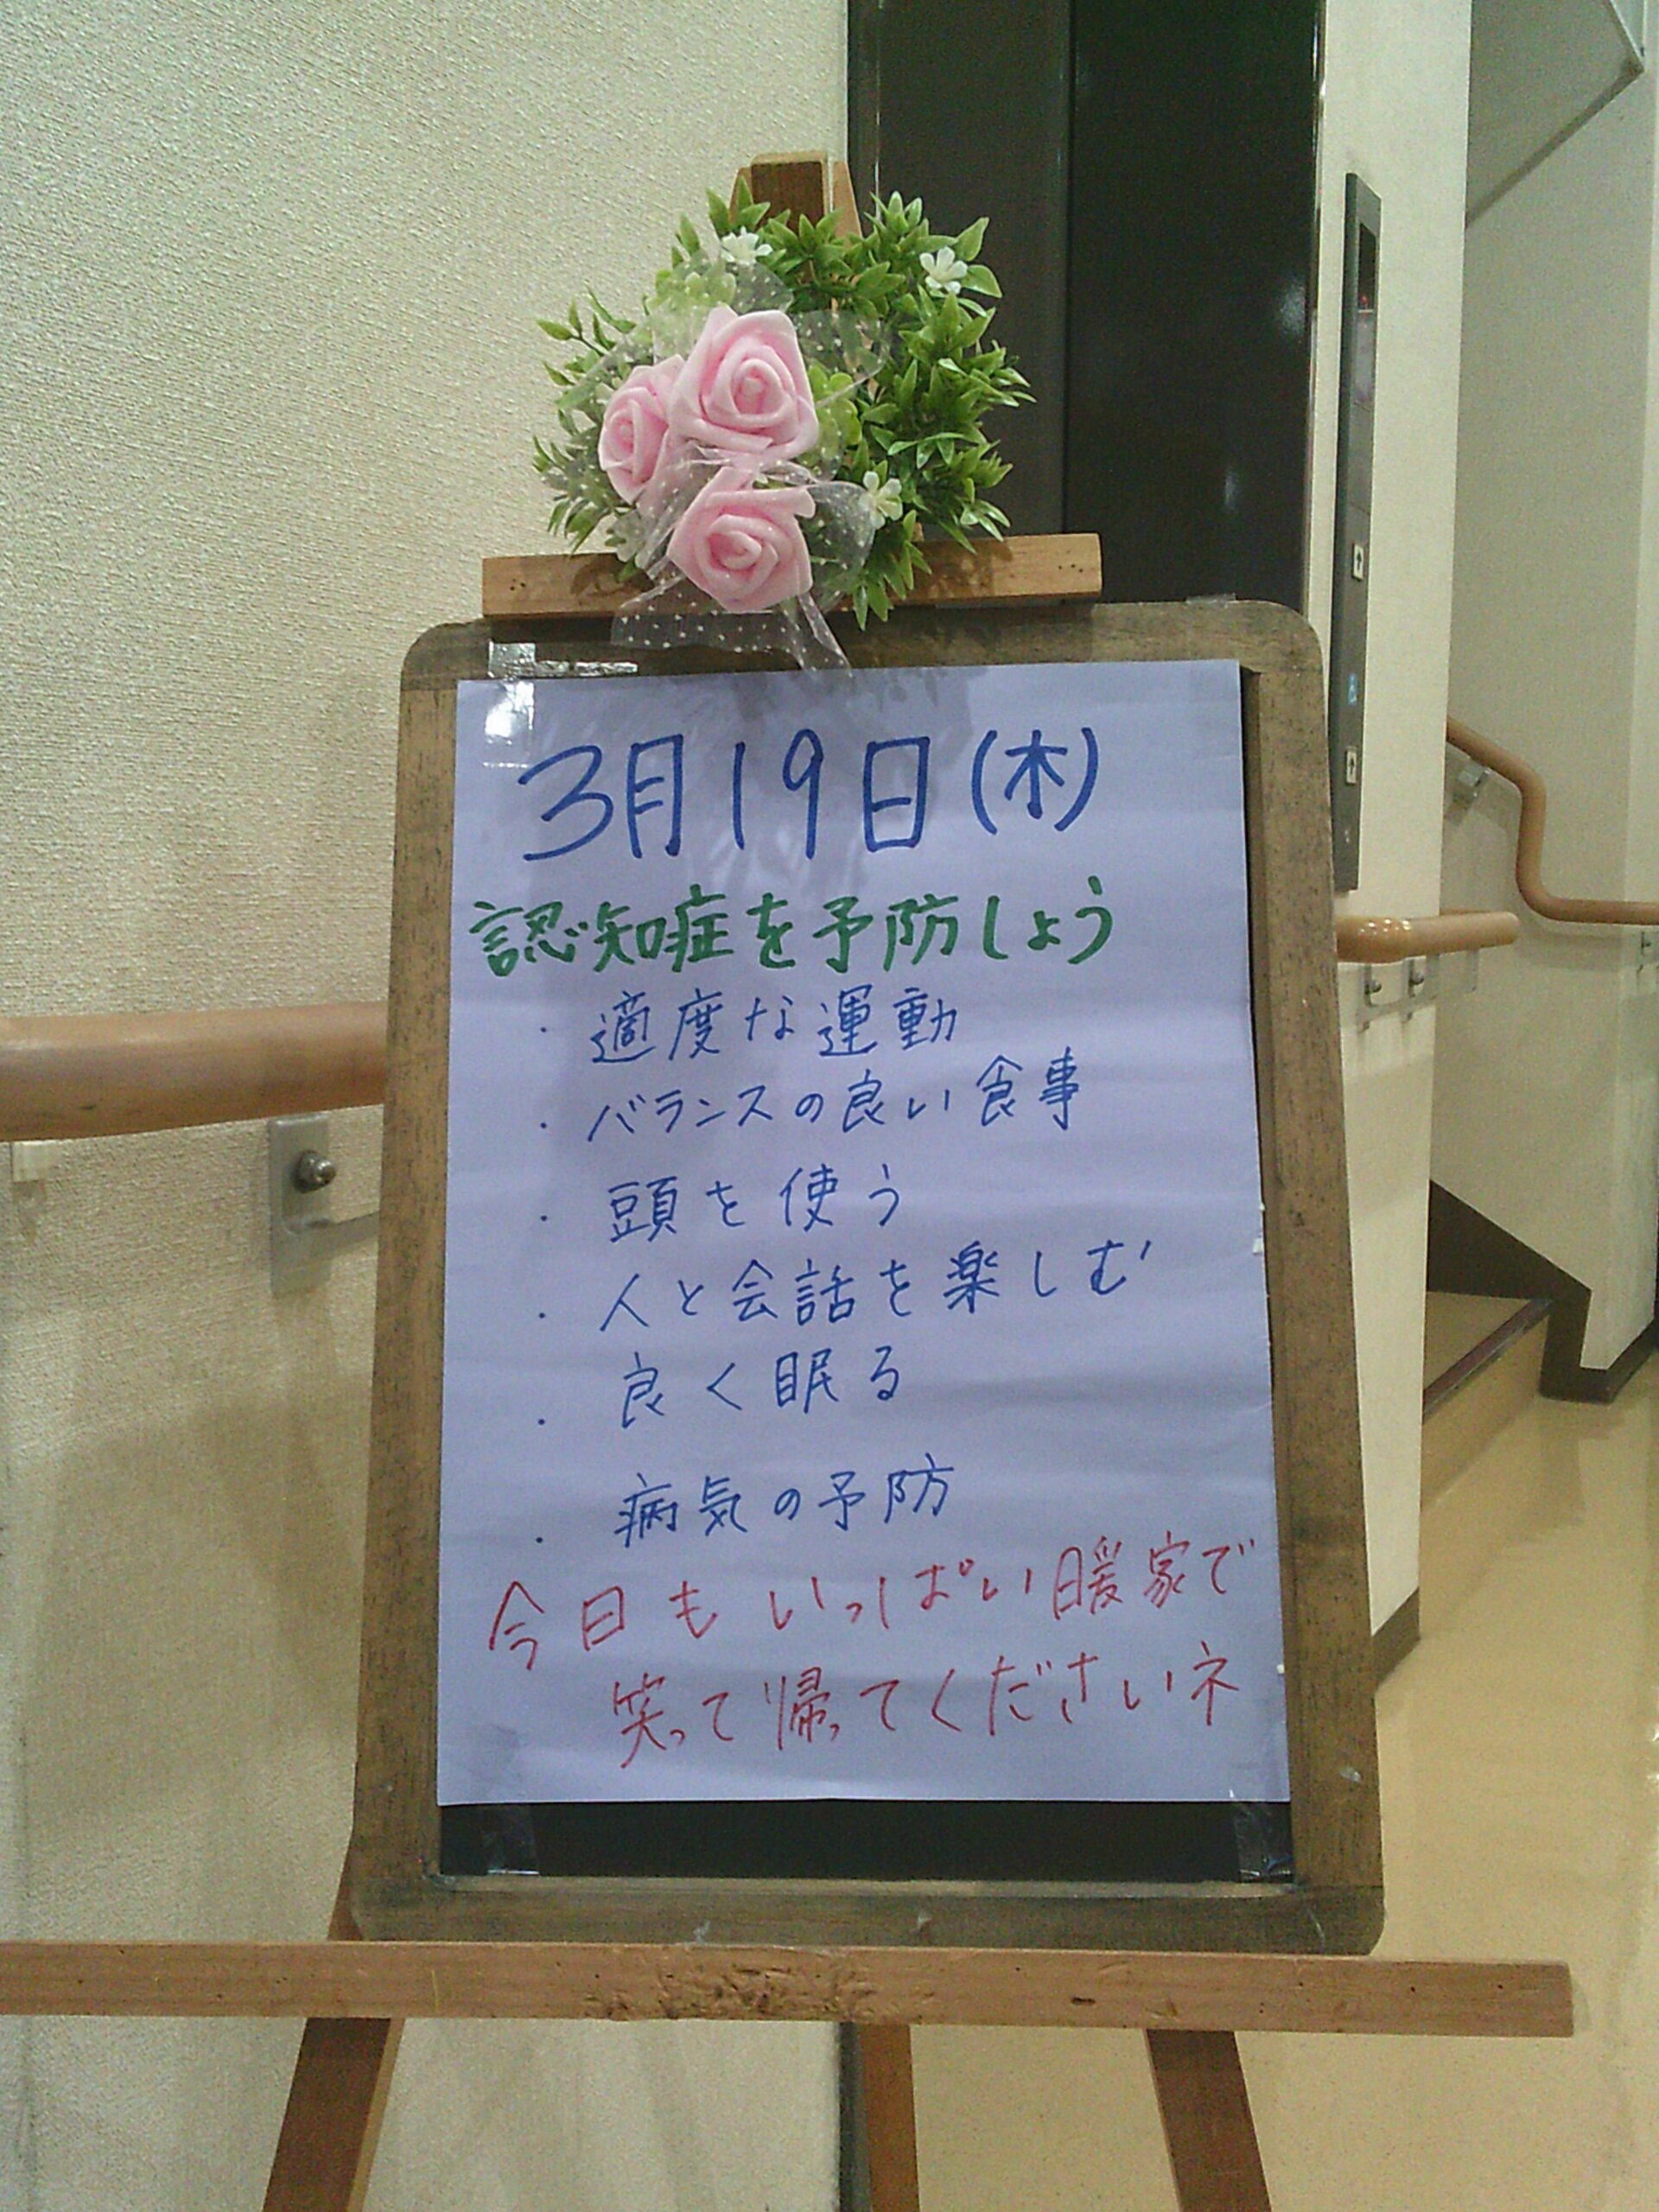 3月19日(木)
認知症を予防しょう
・適度な運動
・バランスの良い食事
・頭を使う
・人と会話を楽しむ
・良く眠る
・病気の予防
今日もいっぱい暖家で
笑って帰ってくださいネ